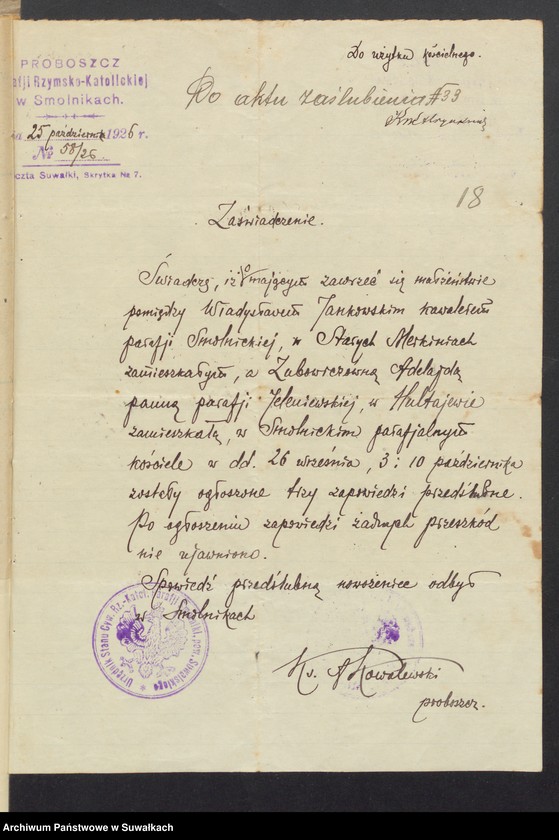 PROBOSZCZ
afji Rzymsko-Katolickiej
w Smolnikach.
25 października 1926 r.
№ 58/26
czta Suwałki, Skrytka № 7.
Do użytku kościelnego.
Do aktu zaślubienia # 33
18
Zaświadczenie.
Świadczę, iż o mającym zawrzeć się małżeństwie
pomiędzy Władysławem Jankowskim kawalerem
parafji Smolnickiej, w Starych Merkiniach
zamieszkałym, a Zubowiczówną Adelajdą
panną parafji Jeleniewskiej, w Hultajewie
zamieszkałą, w Smolnickim parafjalnym
kościele w dd. 26 września, 3 i 10 października
zostały ogłoszone trzy zapowiedzi przedślubne.
Po ogłoszeniu zapowiedzi żadnych przeszkód
nie ujawniono.
Spowiedź przedślubną nowożeniec odbył
w Smolnikach
Urzędnik Stanu Cyw. Rz.-Katol. Parafji Smolniki, pow. Suwalskiego
Ks. A Kowalewski
proboszcz.
Archiwum Państwowe w Suwałkach